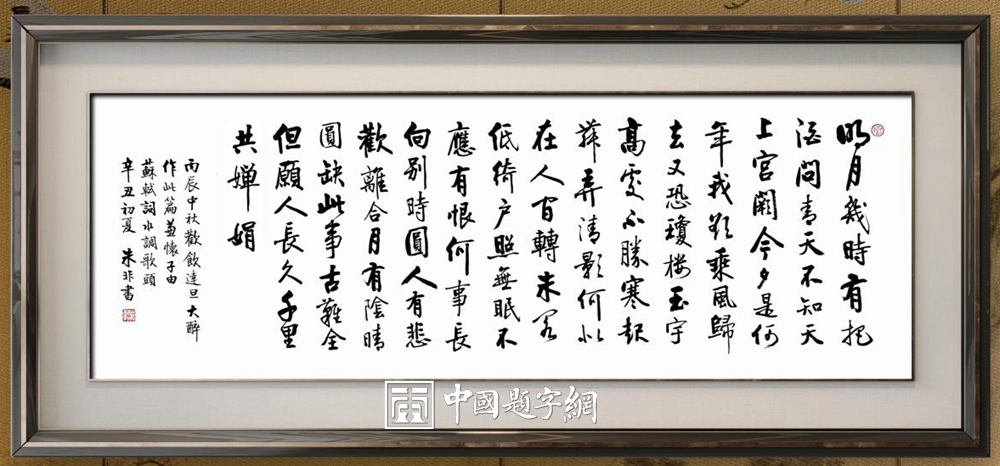 明月幾時有把
酒問青天不知天
上宮闕今夕是何
年我欲乘風歸
去又恐瓊楼玉宇
高處不勝寒起
舞弄清影何似
在人間轉朱閣
低綺户照無眠不
應有恨何事長
向别時圓人有悲
歡離合月有陰晴
圓缺此事古難全
但願人長久千里
共嬋娟
丙辰中秋歡飲達旦大醉
作此篇兼懷子由
蘇軾詞水調歌頭
辛丑初夏 朱非書
中國題字網